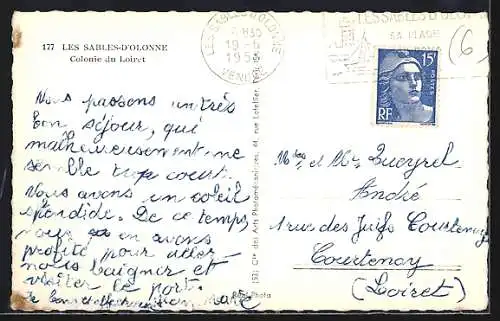 177 LES SABLES-D'OLONNE
Colonie du Loiret
LES SABLES D'OLONNE
19-6
VENDÉE
LES SABLES D'OLONNE
SA PLAGE
15F
POSTES
RF
(6
Nous passons un très
bon séjour, qui
malheureusement ne
semble trop court.
Nous avons un soleil
splendide. De ce temps,
nous en avons
profité pour aller
nous baigner et
visiter le port.
Mr et Mme Queyrel
André
1 rue des Juifs Courtenay
Courtenay
(Loiret)
Cie des Arts Photomécaniques, 44, rue Letellier
Photo